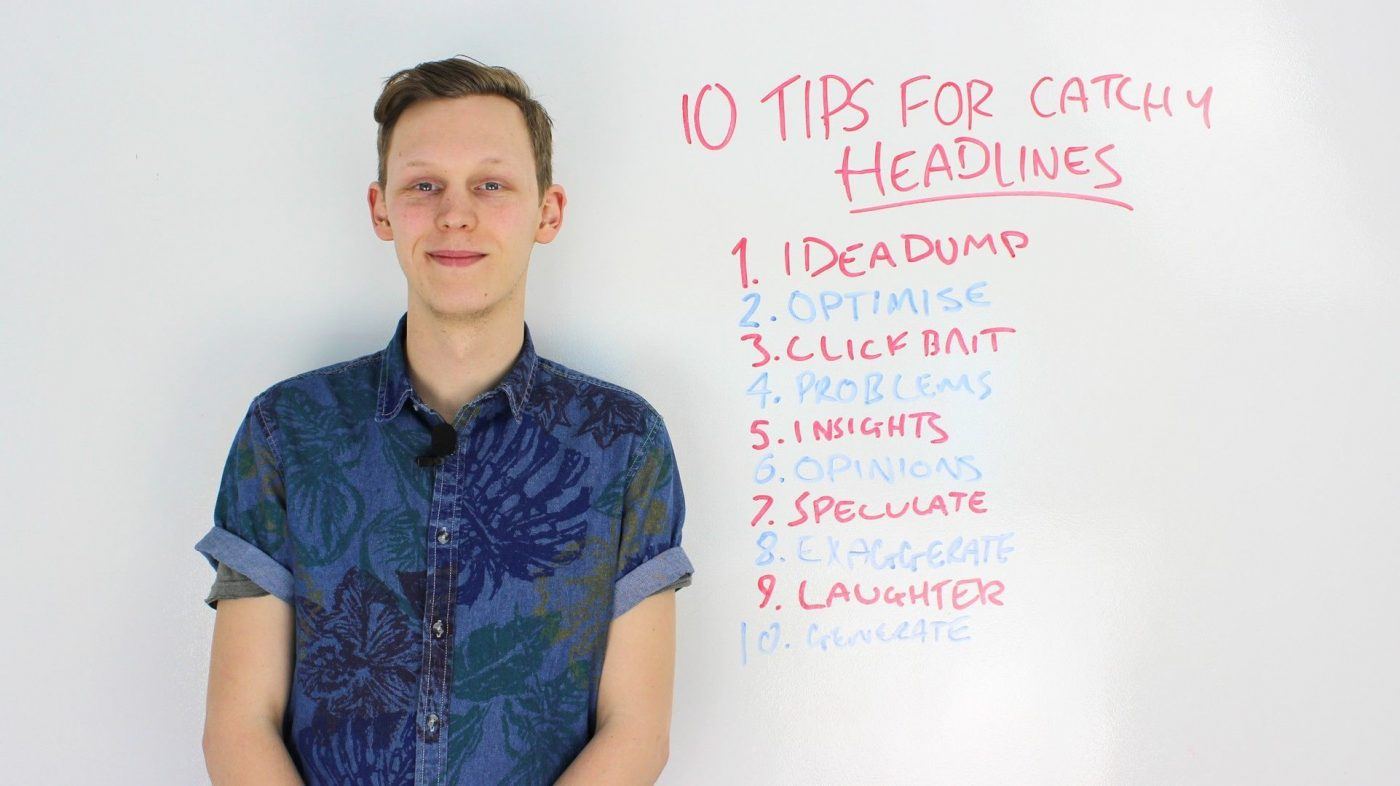 10 TIPS FOR CATCHY
HEADLINES
1. IDEADUMP
2. OPTIMISE
3. CLICKBAIT
4. PROBLEMS
5. INSIGHTS
6. OPINIONS
7. SPECULATE
8. EXAGGERATE
9. LAUGHTER
10. GENERATE